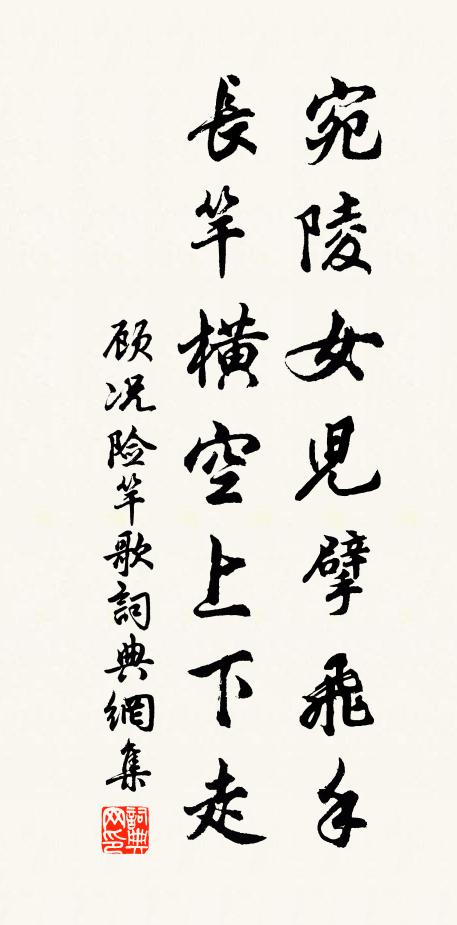 宛陵女兒擘飛手
長竿橫空上下走
顾况险竿歌詞典網集
詞典网印